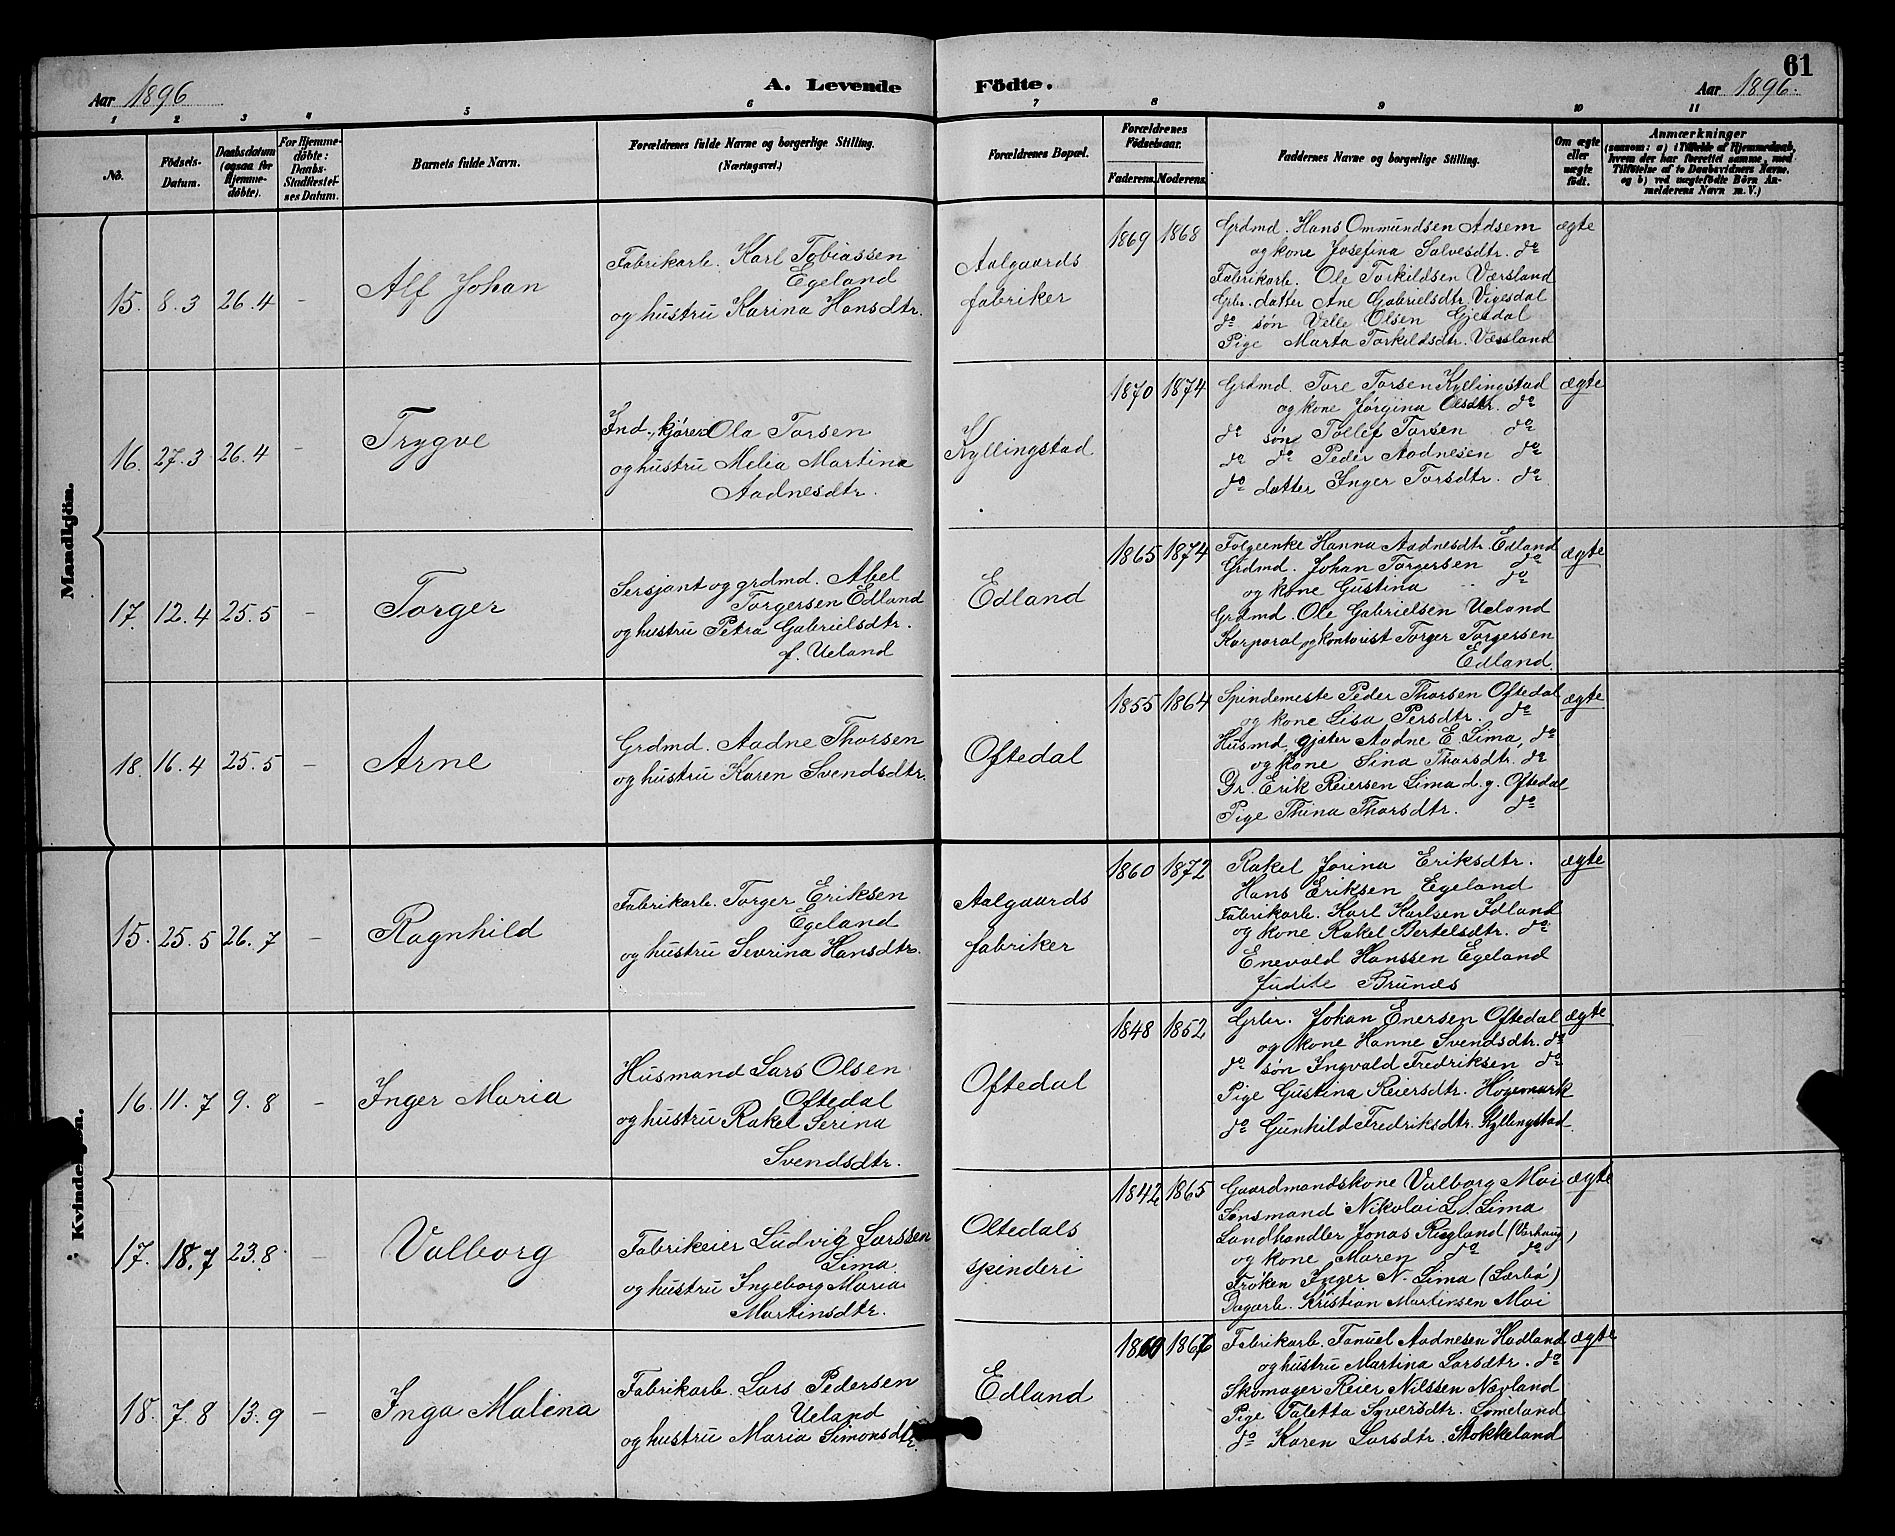 61
Aar 1896
A. Levende Födte.
Aar 1896.
1 2 3 4 5 6 7 8 9 10 11
No.
Födsels-
Datum.
Daabsdatum
(ogsaa for
Hjemme-
döbte).
For Hjemme-
döbte:
Daabs-
Stadfæstel-
ses Datum.
Barnets fulde Navn.
Forældrenes fulde Navne og borgerlige Stilling.
(Næringsvei.)
Forældrenes Bopæl.
Forældrenes
Födselsaar.
Faderens. Moderens.
Faddernes Navne og borgerlige Stilling.
Om ægte
eller
uægte
födt.
Anmærkninger
(saasom: a) i Tilfælde af Hjemmedaab,
hvem der har forrettet samme, med
Tilföielse af to Daabsvidners Navne,
og b) ved uægtefödte Börn An-
melderens Navn m. V.)
Mandkjön.
15. 8.3 26.4 – Alf Johan
Fabrikarb. Karl Tobiassen
Egeland
og hustru Karina Hansdtr.
Aalgaards
fabriker
1869 1868
Grdmd. Hans Ommundsen Adsem
og kone Josefina Salvesdtr. do
Fabrikarb. Ole Torkildsen Værsland
Grbr. datter Ane Gabrielsdtr. Vigesdal
do søn Velle Olsen Gjesdal
Pige Marta Torkildsdtr. Værsland
ægte
16. 27.3 26.4 – Trygve
Ind., kjører Ola Torsen
og hustru Melia Martina
Aadnesdtr.
Kyllingstad
1870 1874
Grdmd. Tore Torsen Kyllingstad
og kone Jørgina Olsdtr. do
do søn Tollef Torsen do
do do Peder Aadnesen do
do datter Inger Torsdtr. do
ægte
17. 12.4 25.5 – Torger
Sersjant og grdmd. Abel
Torgersen Edland
og hustru Petra Gabrielsdtr.
f. Ueland
Edland
1865 1874
Folgeenke Hanna Aadnesdtr. Edland
Grdmd. Johan Torgersen do
og kone Gustina do
Grdmd. Ole Gabrielsen Ueland
Korporal og kontorist Torger Torgersen
Edland.
ægte
18. 16.4 25.5 – Arne
Grdmd. Aadne Thorsen
og hustru Karen Svendsdtr.
Oftedal
1855 1864
Spindemeste Peder Thorsen Oftedal
og kone Lisa Persdtr. do
Husmd, gjæter Aadne E. Lima, do
og kone Sina Thorsdtr. do
Dr. Erik Reiersen Lima d.g. Oftedal
Pige Thina Thorsdtr. do
ægte
Kvindekjön.
15. 25.5 26.7 – Ragnhild
Fabrikarb. Torger Eriksen
Egeland
og hustru Severina Hansdtr.
Aalgaards
fabriker
1860 1872
Rakel Jorina Eriksdtr.
Hans Eriksen Egeland
Fabrikarb. Karl Karlsen Idland
og kone Rakel Bertelsdtr. do
Enevald Hanssen Egeland
Judite Brunæs
ægte
16. 11.7 9.8 – Inger Maria
Husmand Lars Olsen
Oftedal
og hustru Rakel Serina
Svendsdtr.
Oftedal
1848 1852
Grbr. Johan Enersen Oftedal
og kone Hanne Svendsdtr. do
do søn Ingvald Fredriksen do
Pige Gustina Reiersdtr. Høgemark
do Gunhild Fredriksdtr. Kyllingstad.
ægte
17. 18.7 23.8. – Valborg
Fabrikeier Ludvig Larssen
Lima
og hustru Ingeborg Maria
Martinsdtr.
Oltedals
spinderi
1842 1865
Gaardmandskone Valborg Moi
Lensmand Nikolai L. Lima
Landhandler Jonas Rugland (Varhaug)
og kone Maren do do
Frøken Inger N. Lima (Lærbø)
Dagarb. Kristian Martinsen Moi
ægte
18. 7.8 13.9 – Inga Malena
Fabrikarb. Lars Pedersen
Ueland
og hustru Maria Simonsdtr.
Edland
1860 1867
Fabrikarb. Tanuel Aadnesen Hadland
og hustru Martina Larsdtr. do
Skomager Reier Nilssen Nævland
Pige Taletta Syversdtr. Lomeland
do Karen Larsdtr. Stokkeland
ægte